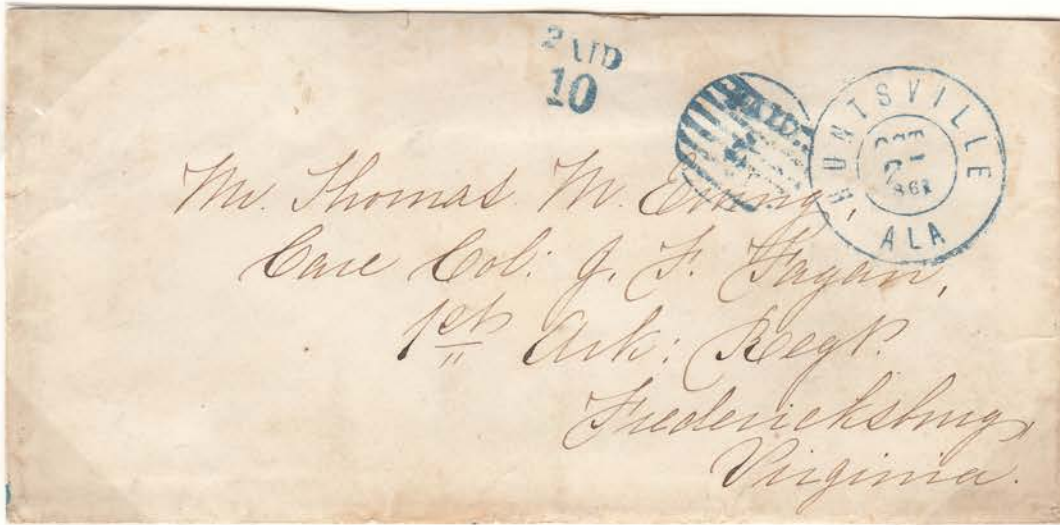 PAID
10
PAID
HUNTSVILLE
OCT
1861
ALA
Mr. Thomas M.
Care Col: J. F. Fagan,
1st Ark: Regt.
Fredericksburg,
Virginia.